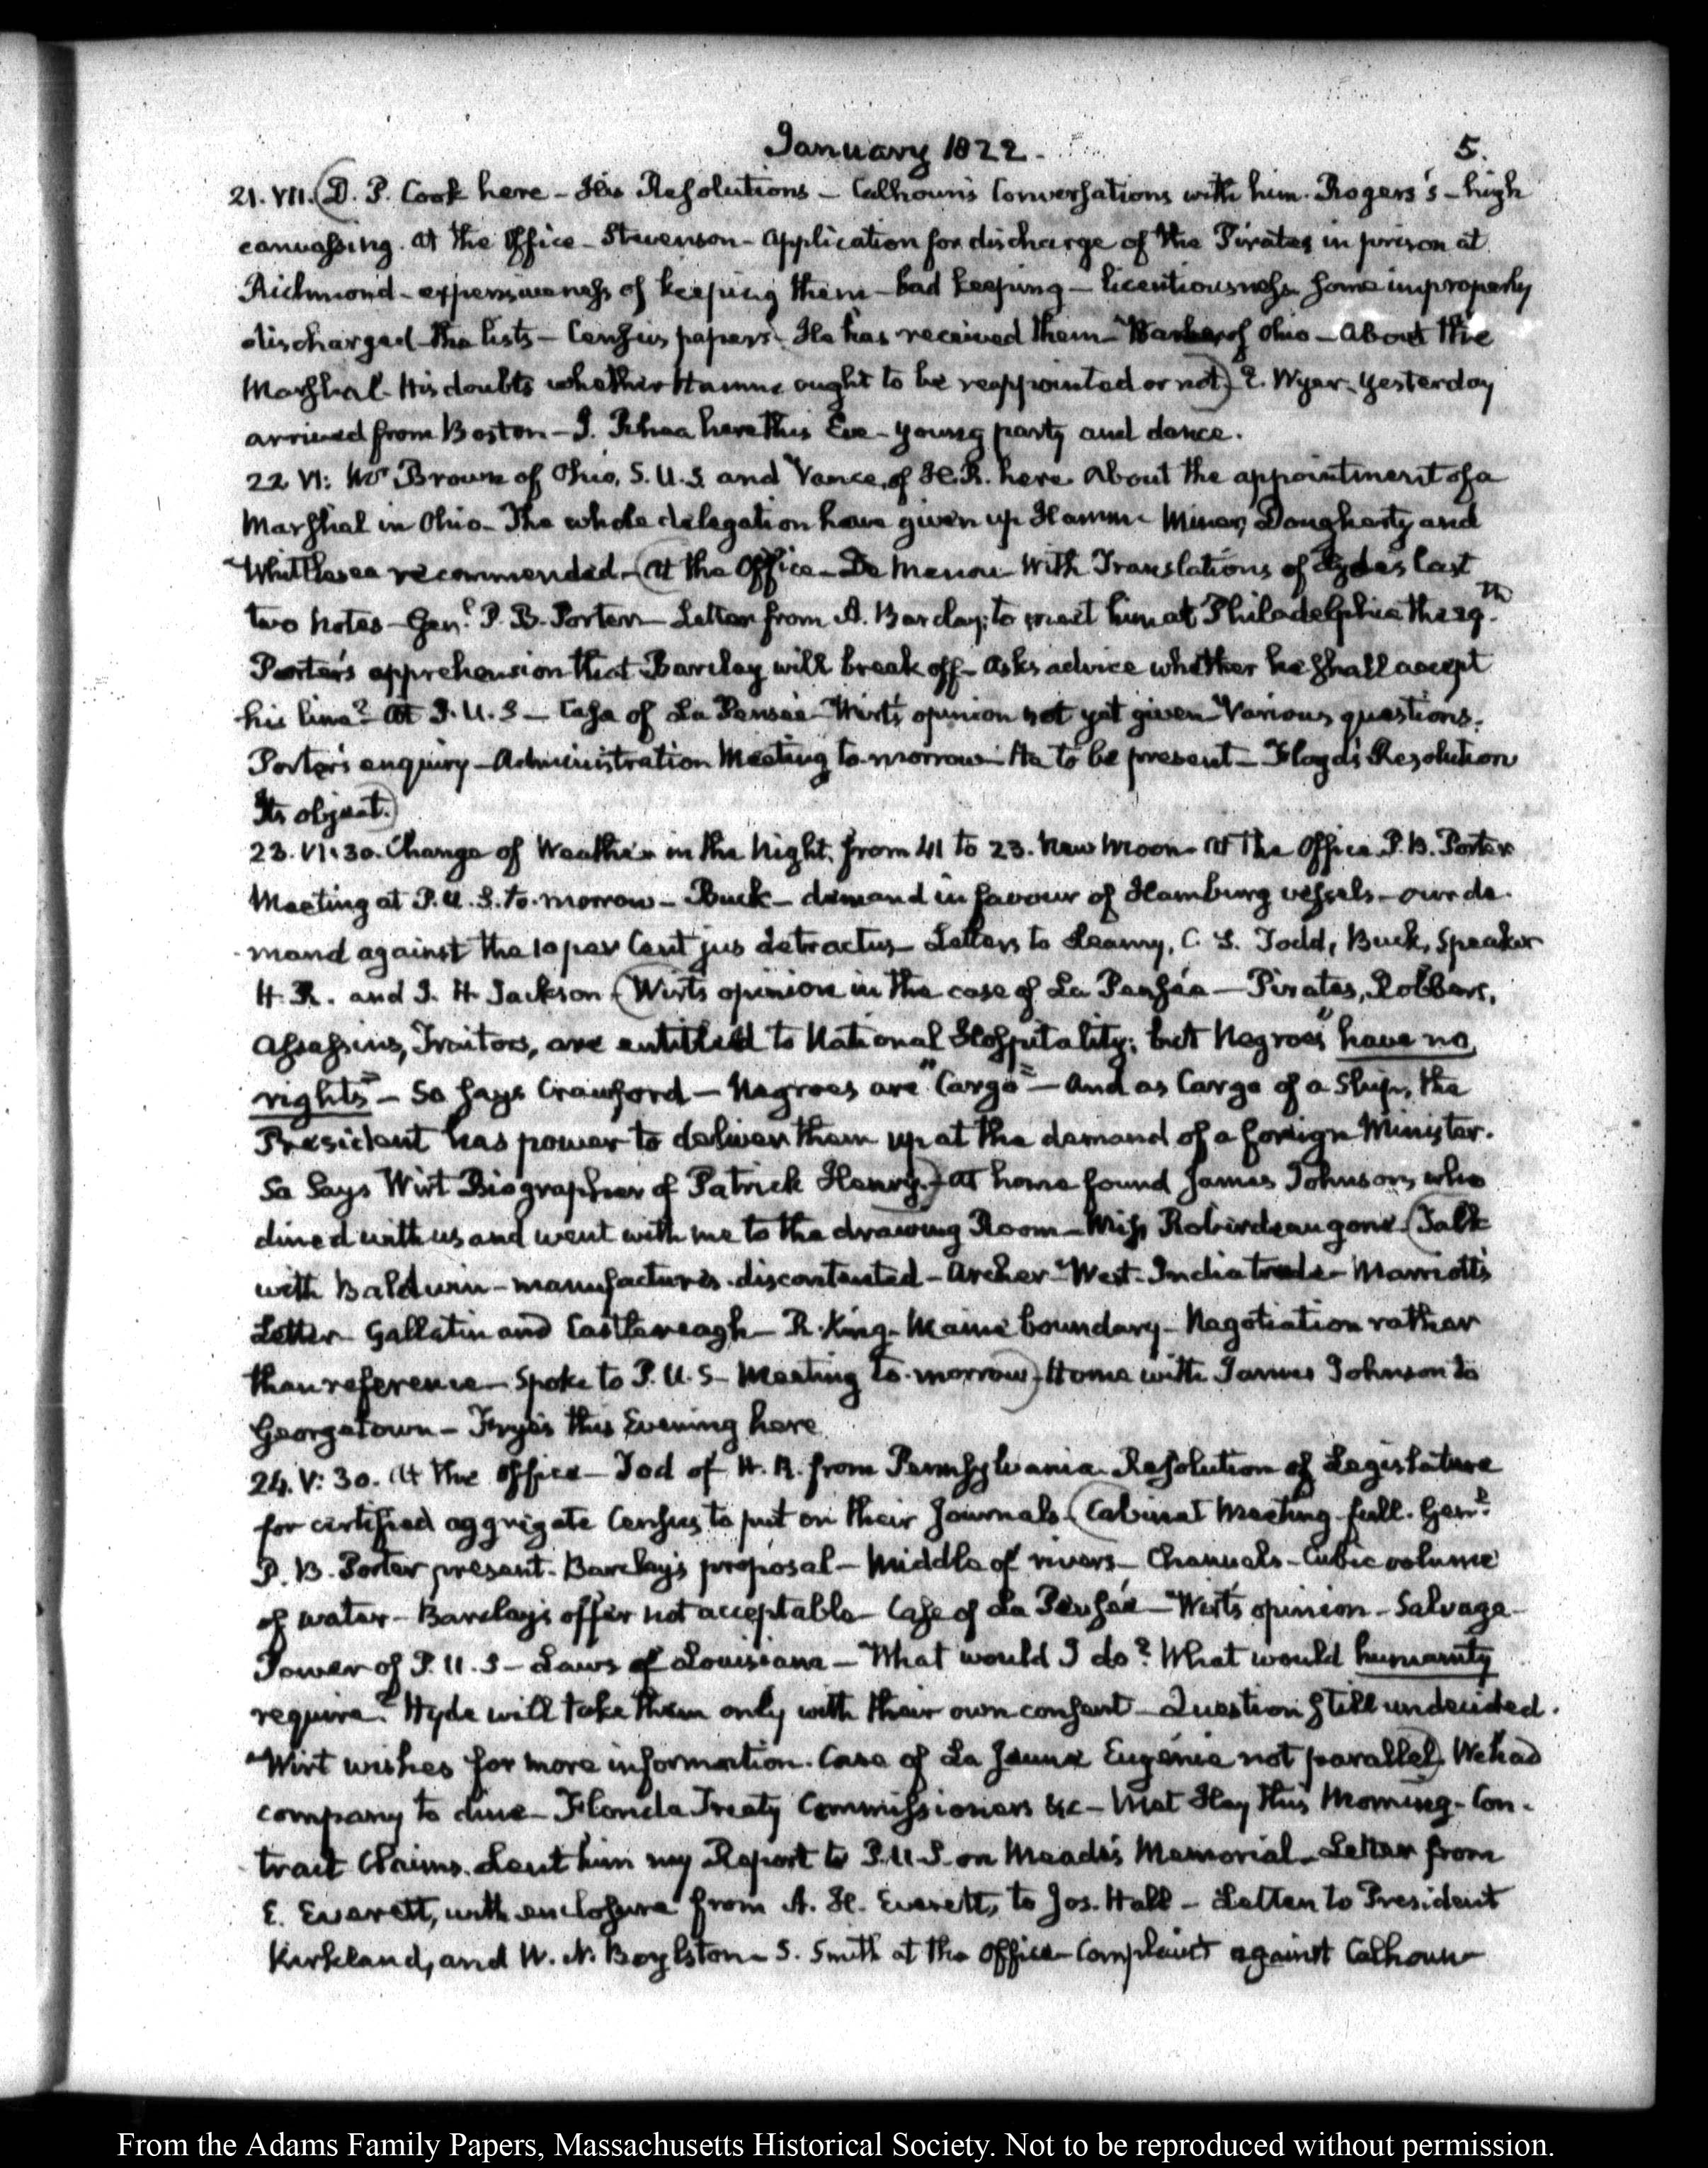 January 1822.
5.
21. VII. (D. P. Cook here – His Resolutions – Calhoun's Conversations with him. Rogers's – high
canvassing. At the Office – Stevenson – Application for discharge of the Pirates in prison at
Richmond – expensiveness of keeping them – bad keeping – licentiousness. Some improperly
discharged – the lists – Census papers. He has received them – of Ohio – About the
Marshal. His doubts whether Hamm ought to be reappointed or not) E. Wyer. Yesterday
arrived from Boston – J. Rhea here this Eve – young party and dance.
22 VI: Mr Brown of Ohio, S. U. S and Vance, of H. R. here. About the appointment of a
Marshal in Ohio – The whole delegation have given up Hamm – Miner, Dougherty and
Whittlesea recommended – (At the Office – De Menou with Translations of Hyde's last
two notes – Genl. P. B. Porter – Letter from A. Barclay; to meet him at Philadelphia the 29th.
Porter's apprehension that Barclay will break off – Asks advice whether he shall accept
his line? At P. U. S – Case of La Pensée – Wirt's opinion not yet given – Various questions.
Porter's enquiry – Administration Meeting to-morrow – He to be present – Floyd's Resolution
Its object.)
23. VI:30. Change of Weather in the Night, from 41 to 23. New Moon – At the Office P. B. Porter
Meeting at P. U. S. to-morrow – Buck – demand in favour of Hamburg vessels – our de-
mand against the 10 per Cent jus detractus – Letters to Leamy, C. S. Todd, Buck, Speaker
H. R. and J. H. Jackson (Wirt's opinion in the case of La Pensée – Pirates, Robbers,
Assassins, Traitors, are entitled to National Hospitality; but Negroes "have no
rights" – So says Crawford – Negroes are "Cargo" – And as Cargo of a Ship, the
President has power to deliver them up at the demand of a foreign Minister.
So says Wirt Biographer of Patrick Henry.) At home found James Johnson, who
dined with us and went with me to the drawing Room – Miss Robirdeau gone. (Talk
with Baldwin – manufactures. discontented – Archer – West-India trade – Marriott's
Letter – Gallatin and Castlereagh – R. King – Maine boundary – Negotiation rather
than reference – Spoke to P. U. S – Meeting to-morrow) – Home with James Johnson to
Georgetown – Frye's this Evening here
24. V:30. At the Office – Tod of H. R. from Pennsylvania. Resolution of Legislature
for certified aggregate Census to put on their Journals. (Cabinet Meeting – full. Genl.
P. B. Porter present. Barclay's proposal – Middle of rivers – Channels – Cubic volume
of water – Barclay's offer not acceptable – Case of La Pensée – Wirt's opinion – Salvage –
Power of P. U. S – Laws of Louisiana – What would I do? What would humanity
require? Hyde will take them only with their own consent – Question still undecided.
Wirt wishes for more information. Case of La Jeune Eugénie not parallel) We had
company to dine – Florida Treaty Commissioners &c – Met Hay this Morning – Con-
tract Claims. Lent him my Report to P. U. S. on Meade's Memorial – Letter from
E. Everett, with enclosure from A. H. Everett, to Jos. Hall – Letter to President
Kirkland, and W. N. Boylston – S. Smith at the Office – Complaint against Calhoun
From the Adams Family Papers, Massachusetts Historical Society. Not to be reproduced without permission.